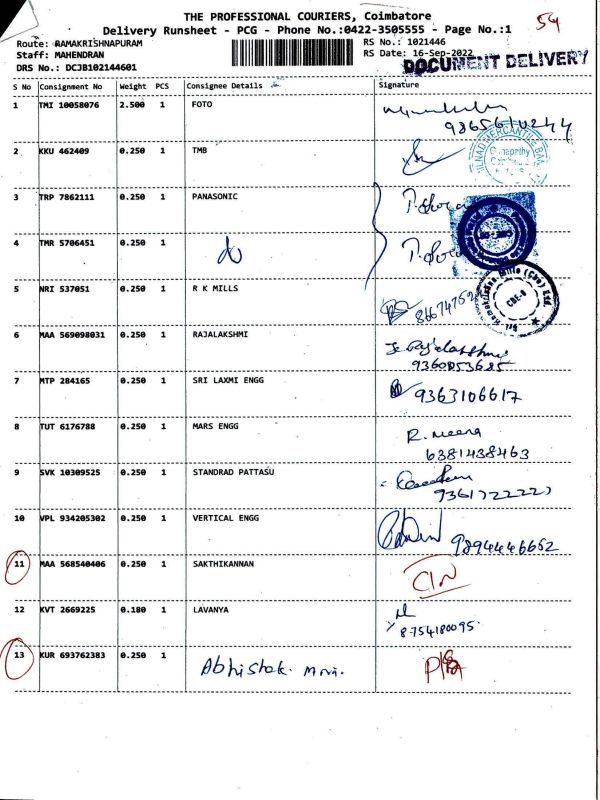 THE PROFESSIONAL COURIERS, Coimbatore
54
Delivery Runsheet - PCG - Phone No.:0422-3505555 - Page No.:1
Route: RAMAKRISHNAPURAM
RS No.: 1021446
Staff: MAHENDRAN
RS Date: 16-Sep-2022
DOCUMENT DELIVERY
DRS No.: DCJB102144601
S No Consignment No Weight PCS Consignee Details Signature
1 TMI 10058076 2.500 1 FOTO
9865610244
2 KKU 462409 0.250 1 TMB
3 TRP 7862111 0.250 1 PANASONIC
4 TMR 5706451 0.250 1
5 NRI 537051 0.250 1 R K MILLS
6 MAA 569098031 0.250 1 RAJALAKSHMI
9360853685
7 MTP 284165 0.250 1 SRI LAXMI ENGG 9363106617
8 TUT 6176788 0.250 1 MARS ENGG R. Meena
6381438463
9 SVK 10309525 0.250 1 STANDRAD PATTASU
10 VPL 934205302 0.250 1 VERTICAL ENGG
9894446652
11 MAA 568540406 0.250 1 SAKTHIKANNAN
12 KVT 2669225 0.180 1 LAVANYA
8754180095
13 KUR 693762383 0.250 1 Abhishak.